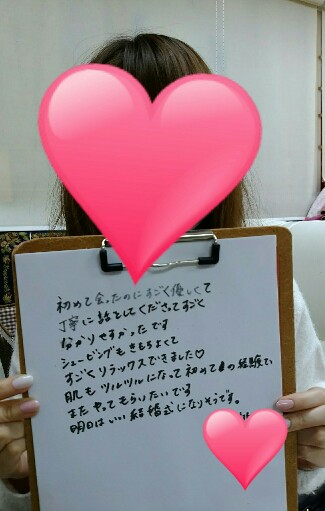 初めて会ったのにすごく優しくて
丁寧に話をしてくださってすごく
わかりやすかったです
シェービングもきもちよくて
すごくリラックスできました♡
肌もツルツルになって初めての経験で
またやってもらいたいです
明日はいい結婚式になりそうです。